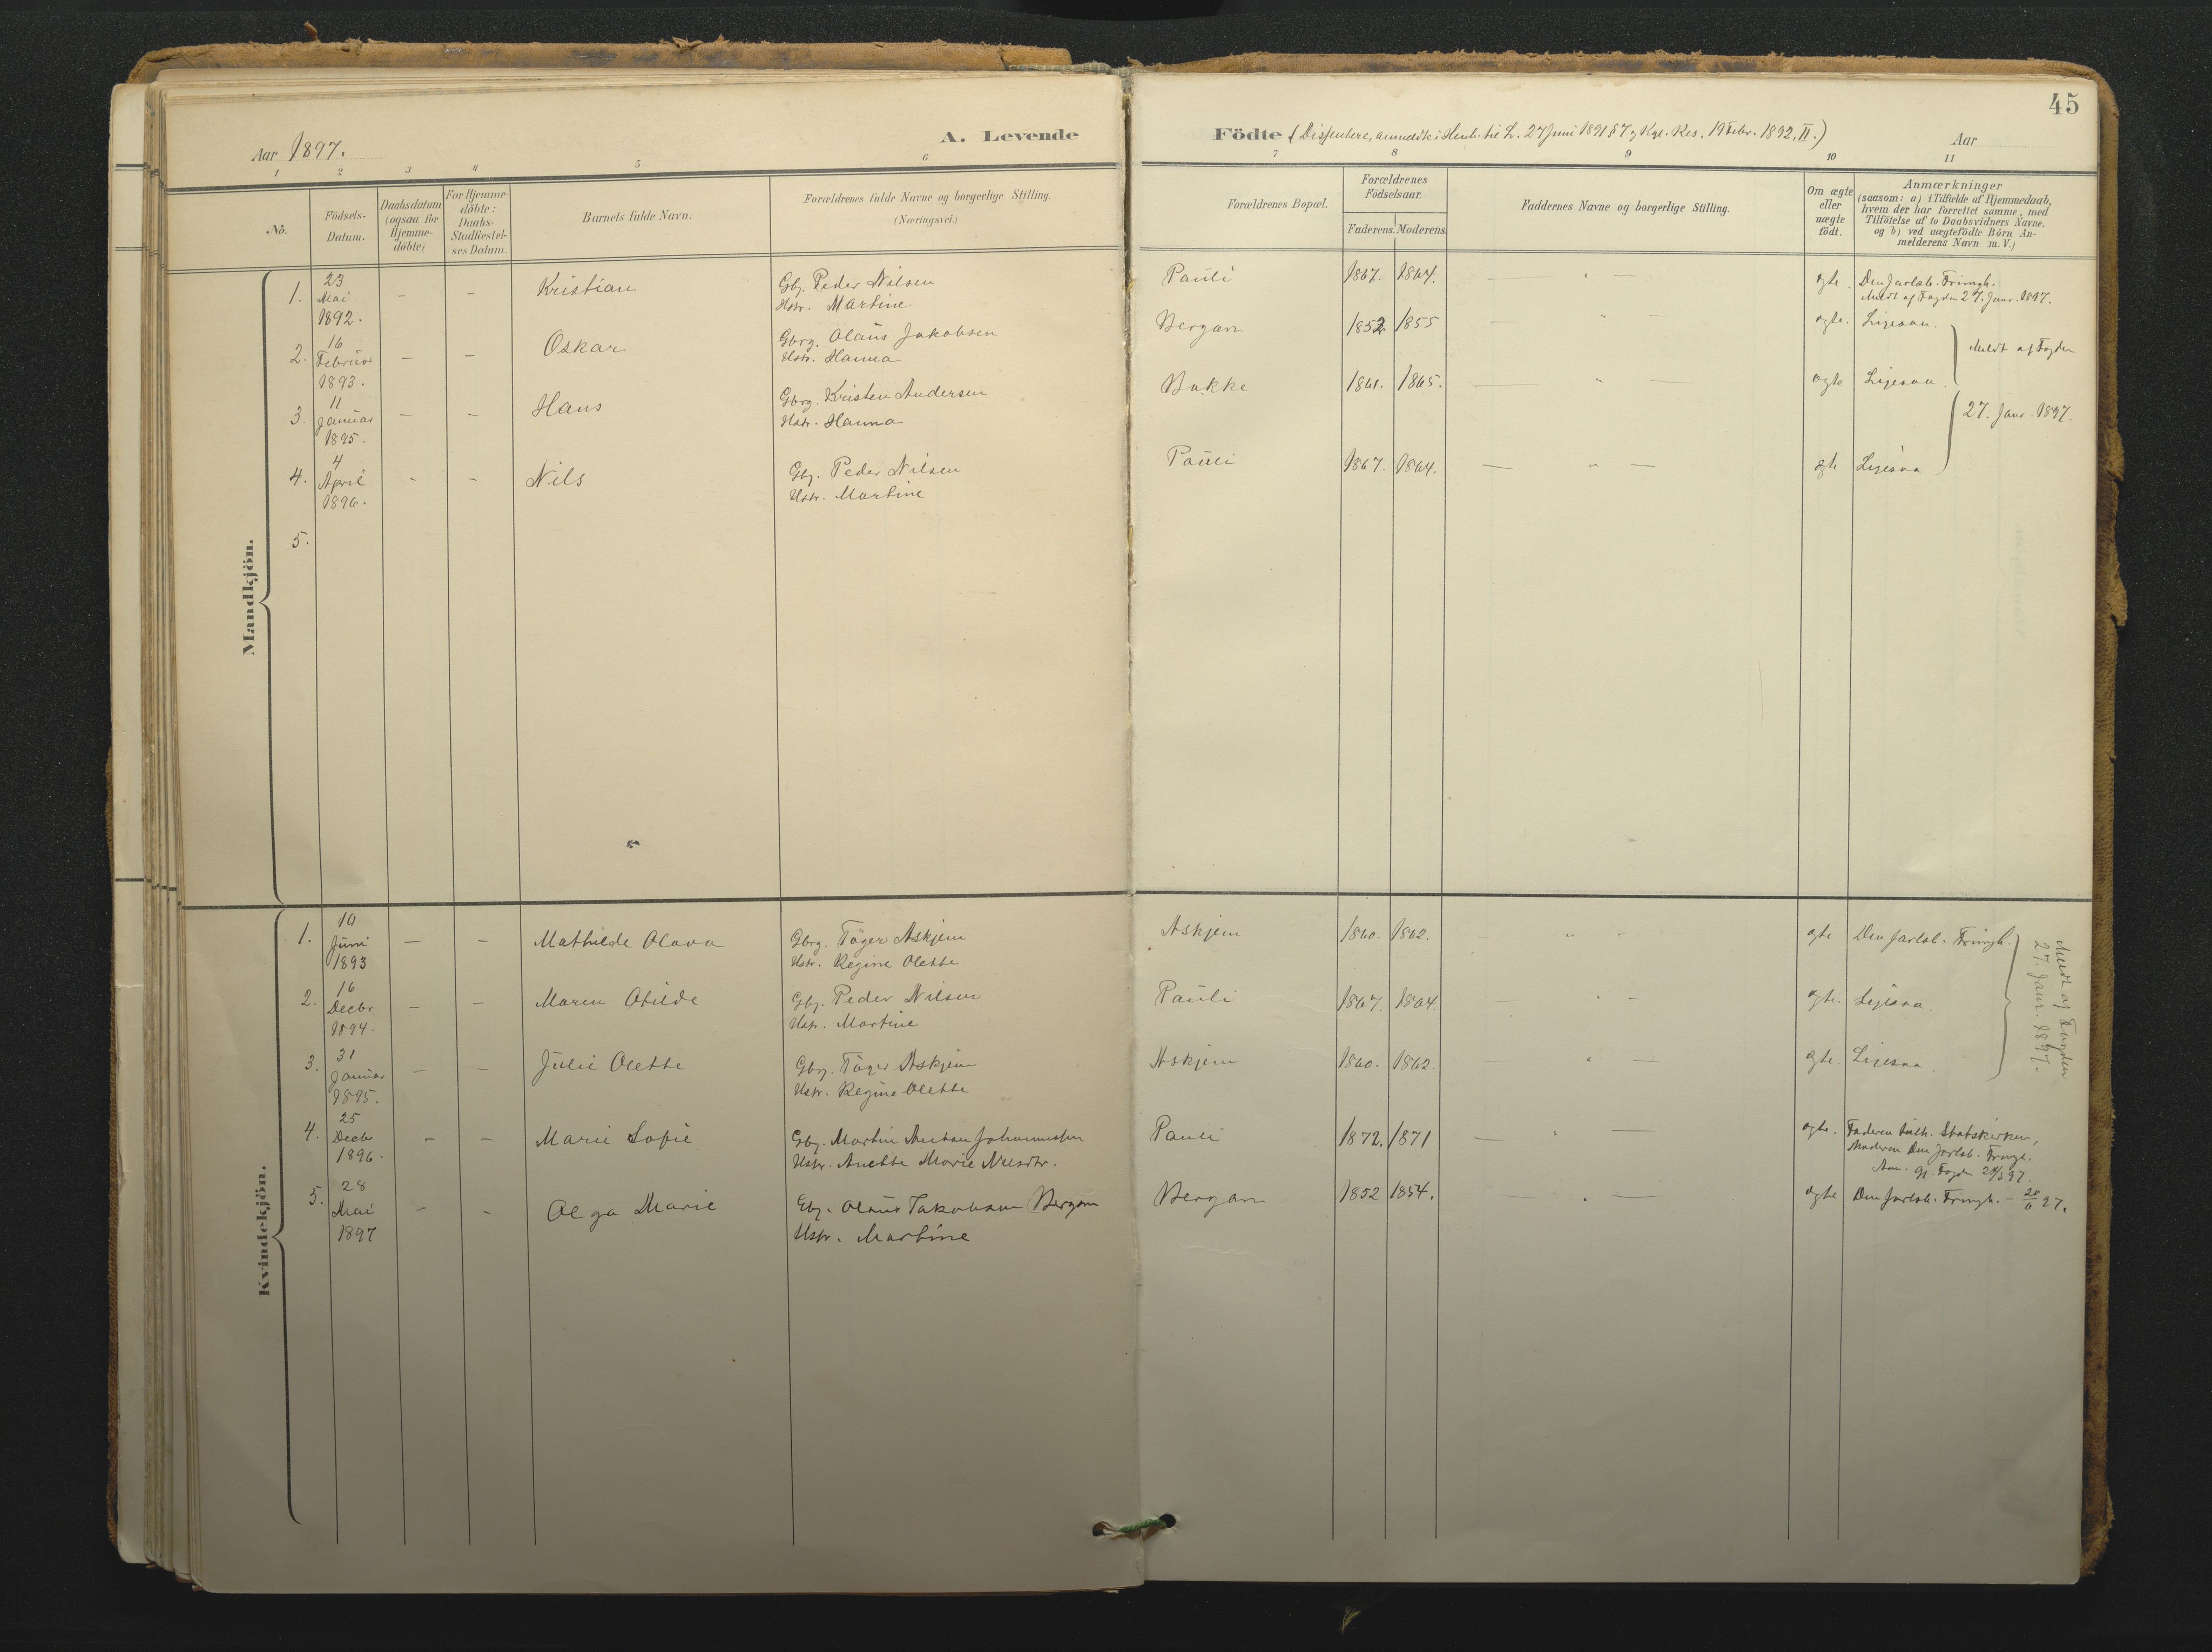 45
Aar 1897.
A. Levende
Födte (Dissentere, anmeldte i Henh. til L. 27 Juni 1891 § 7 og Kgl. Res. 19 Febr. 1892, II.)
Aar
1 2 3 4 5 6 7 8 9 10 11
No.
Födsels-
Datum.
Daabsdatum
(ogsaa for
Hjemme-
döbte)
For Hjemme-
döbte:
Daabs-
Stadfæstel-
ses Datum.
Barnets fulde Navn.
Forældrenes fulde Navne og borgerlige Stilling.
(Næringsvei.)
Forældrenes Bopæl.
Forældrenes
Födselsaar.
Faderens. Moderens.
Faddernes Navne og borgerlige Stilling.
Om ægte
eller
uægte
födt.
Anmærkninger
(saasom: a) i Tilfælde af Hjemmedaab,
hvem der har forrettet samme, med
Tilföielse af to Daabsvidners Navne.
og b) ved uægtefödte Börn An-
melderens Navn m. V.)
Mandkjön.
1. 23 Mai 1892. – – Kristian
Gbg. Peder Nilsen
Hstr. Martine
Pauli 1867. 1864. — " — ægte.
Den Jarlsb. Frimgh.
Meldt af Fogden 27. Janr. 1897.
2. 16 Februar 1893. – – Oskar
Gbrg. Olaus Jakobsen
Hstr. Hanna
Bergan 1852 1855 — " — ægte. Ligesaa.
Meldt af Fogden
3. 11 Januar 1895. – – Hans
Gbrg. Kristen Andersen
Hstr. Hanna
Bakke 1861. 1865. — " — ægte Ligesaa.
27. Janr. 1897.
4. 4 April 1896. – – Nils
Gbg. Peder Nilsen
Hstr. Martine
Pauli 1867. 1864. — " — ægte Ligesaa
5.
Kvindekjön.
1. Juni 1893 – – Mathilde Olava
Gbrg. Töger Askjem
Hstr. Regine Olette
Askjem 1860. 1862. — " — ægte Den Jarlsb. Frimgh.
Meldt af Fogden
27. Janr. 1897.
2. 16 Decbr 1894. – – Maren Otilde
Gbg. Peder Nilsen
Hstr. Martine
Pauli 1867. 1864. — " — ægte. Ligesaa.
3. 31 Januar 1895. – – Julie Olette
Gbg. Töger Askjem
Hstr. Regine Olette
Askjem 1860. 1862. — " — ægte. Ligesaa.
4. 25 Decbr 1896. – – Marie Sofie
Gbg. Martin Anton Johannessen
Hstr. Anette Marie Nilsdtr.
Pauli 1872. 1871 — " — ægte.
Faderen luth. Statskirken,
Moderen Den Jarlsb. Frmgh.
Anm. gj. Fogden
5. 28 Mai 1897 – – Olga Marie
Gbg. Olaus Jakobsen Bergan
Hstr. Martine
Bergan 1852 1854. — " — ægte Den Jarlsb. Frmgh. – 28/6 97.